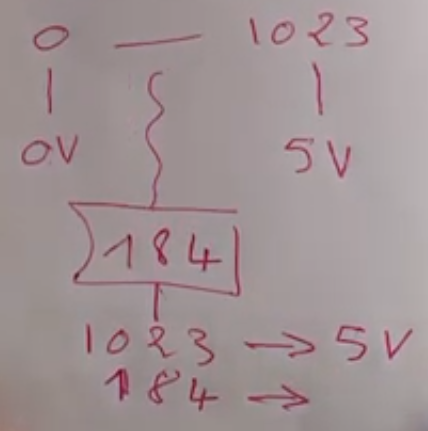 0 — 1023
0V 5V
184
1023 → 5V
184 →